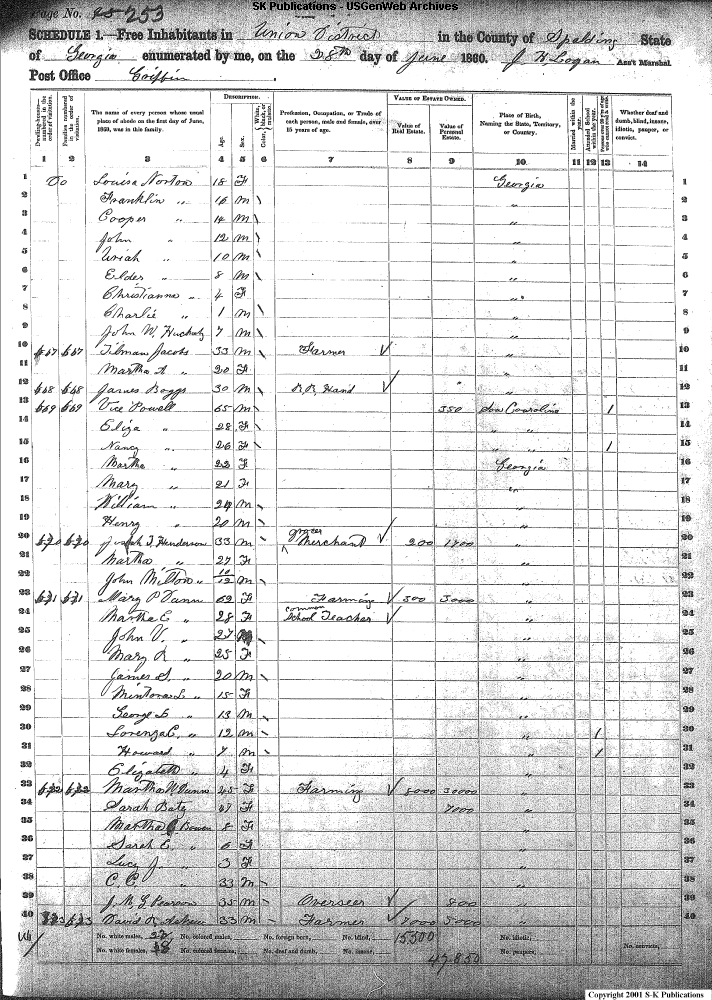 SK Publications - USGenWeb Archives
Page No. 253
SCHEDULE 1.—Free Inhabitants in Union District in the County of Spalding State
of Georgia enumerated by me, on the 28th day of June 1860. J. H. Logan Ass't Marshal
Post Office Griffin
DESCRIPTION. VALUE OF ESTATE OWNED.
Dwelling-houses—numbered in the order of visitation. Families numbered in the order of visitation. The name of every person whose usual place of abode on the first day of June, 1860, was in this family. Age. Sex. Color, White, black, or mulatto. Profession, Occupation, or Trade of each person, male and female, over 15 years of age. Value of Real Estate. Value of Personal Estate. Place of Birth, Naming the State, Territory, or Country. Married within the year. Attended School within the year. Whether deaf and dumb, blind, insane, idiotic, pauper, or convict.
1 2 3 4 5 6 7 8 9 10 11 12 13 14
1 Louisa Norton 18 F Georgia 1
2 Franklin " 16 M \ " 2
3 Cooper " 14 M \ " 3
4 John " 12 M \ " 4
5 Uriah " 10 M \ " 5
6 Elder " 8 M \ " 6
7 Christianna " 4 F " 7
8 Charlie " 1 M \ " 8
9 John W. 7 M \ " 9
10 667 667 Tilman Jacobs 33 M \ Farmer ✓ " 10
11 Martha A " 20 F " 11
12 668 668 James Boggs 30 M \ R.R. Hand ✓ " 12
13 669 669 Vice Powell 65 M \ 350 Sou Carolina 1 13
14 Eliza " 28 F \ " " 14
15 Nancy " 26 F \ " " 1 15
16 Martha " 22 F Georgia 16
17 Mary " 21 F " 17
18 William " 24 M \ 18
19 Henry " 20 M \ 19
20 670 670 Joseph T. Henderson 33 M Grocer Merchant ✓ 200 1700 " 20
21 Martha " 27 F " 21
22 John Milton " 10/12 M " 22
23 671 671 Mary P Dunn 62 F Farming ✓ 500 3000 " 23
24 Martha E " 28 F Common School Teacher ✓ " 24
25 John V. " 27 " 25
26 Mary R " 25 F " 26
27 James S. " 20 M " 27
28 " 15 F " 28
29 George L " 13 M \ " 29
30 Lorenza C. " 12 M \ " 1 30
31 Howard " 7 M \ " 1 31
32 Elizabeth " 4 F " 32
33 672 672 Martha W Dunn 45 F Farming ✓ 8000 30000 " 33
34 Sarah Bates 47 F 7000 " 34
35 Martha Bowen 8 F " 35
36 Sarah E. " 6 F " 36
37 Lucy J. " 3 F " 37
38 C. C. " 33 M " 38
39 J. M. G. Pearson 35 M Overseer ✓ 800 " 39
40 673 673 David R. Askew 33 M Farmer ✓ 7000 5000 " 40
No. white males, 22 No. colored males, No. foreign born, No. blind, 15500 No. idiotic,
No. white females, 18 No. colored females, No. deaf and dumb, No. insane, 47850 No. paupers, No. convicts,
Copyright 2001 S-K Publications